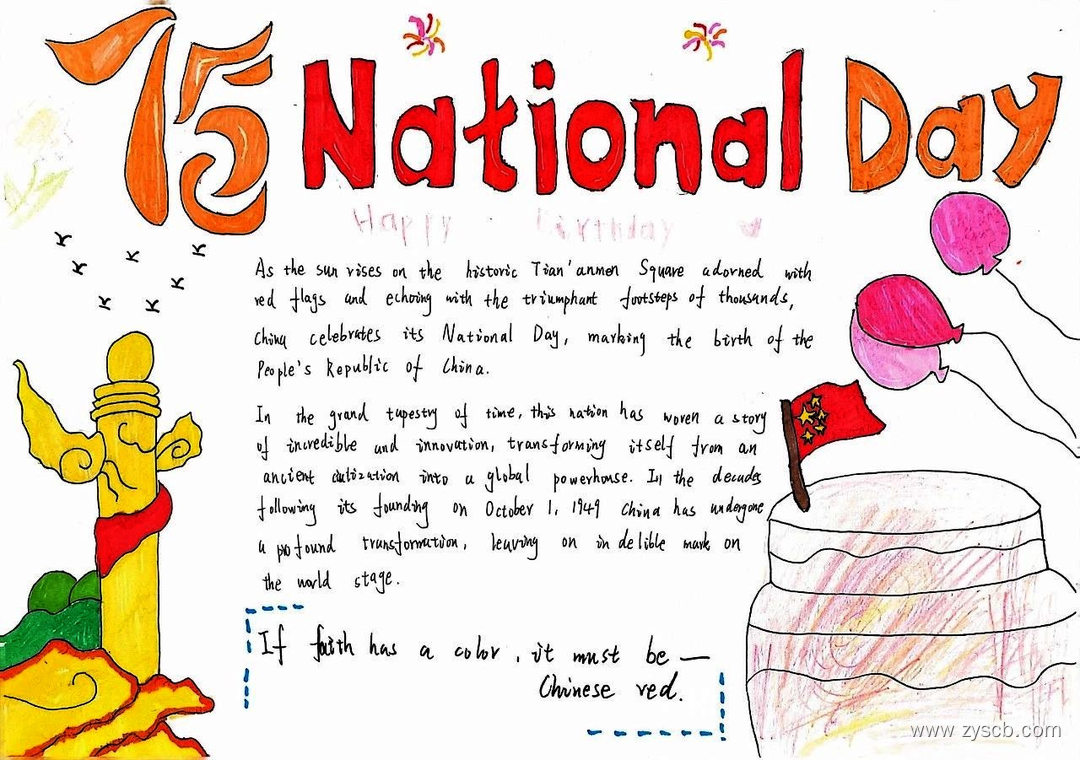 75 National Day
Happy Birthday
As the sun rises on the historic Tian'anmen Square adorned with
red flags and echoing with the triumphant footsteps of thousands,
China celebrates its National Day, marking the birth of the
People's Republic of China.
In the grand tapestry of time, this nation has woven a story
of incredible and innovation, transforming itself from an
ancient into a global powerhouse. In the decades
following its founding on October 1, 1949 China has undergone
a profound transformation, leaving on indelible mark on
the world stage.
If faith has a color, it must be —
Chinese red.
www.zyscb.com